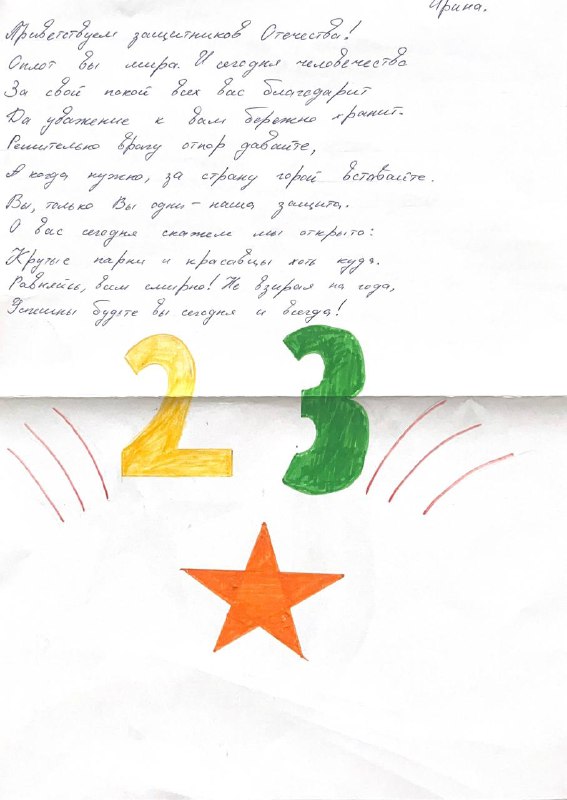 Ирина.
Приветствуем защитников Отечества!
Оплот вы мира. И сегодня человечество
За свой покой всех вас благодарит
Да уважение к вам бережно хранит.
Решительно врагу отпор давайте,
А когда нужно, за страну горой вставайте.
Вы, только Вы одни - наша защита.
О вас сегодня скажем мы открыто:
Крутые парни и красавцы хоть куда.
Равняйсь, вам смирно! Не взирая на года,
Успешны будете вы сегодня и всегда!
23